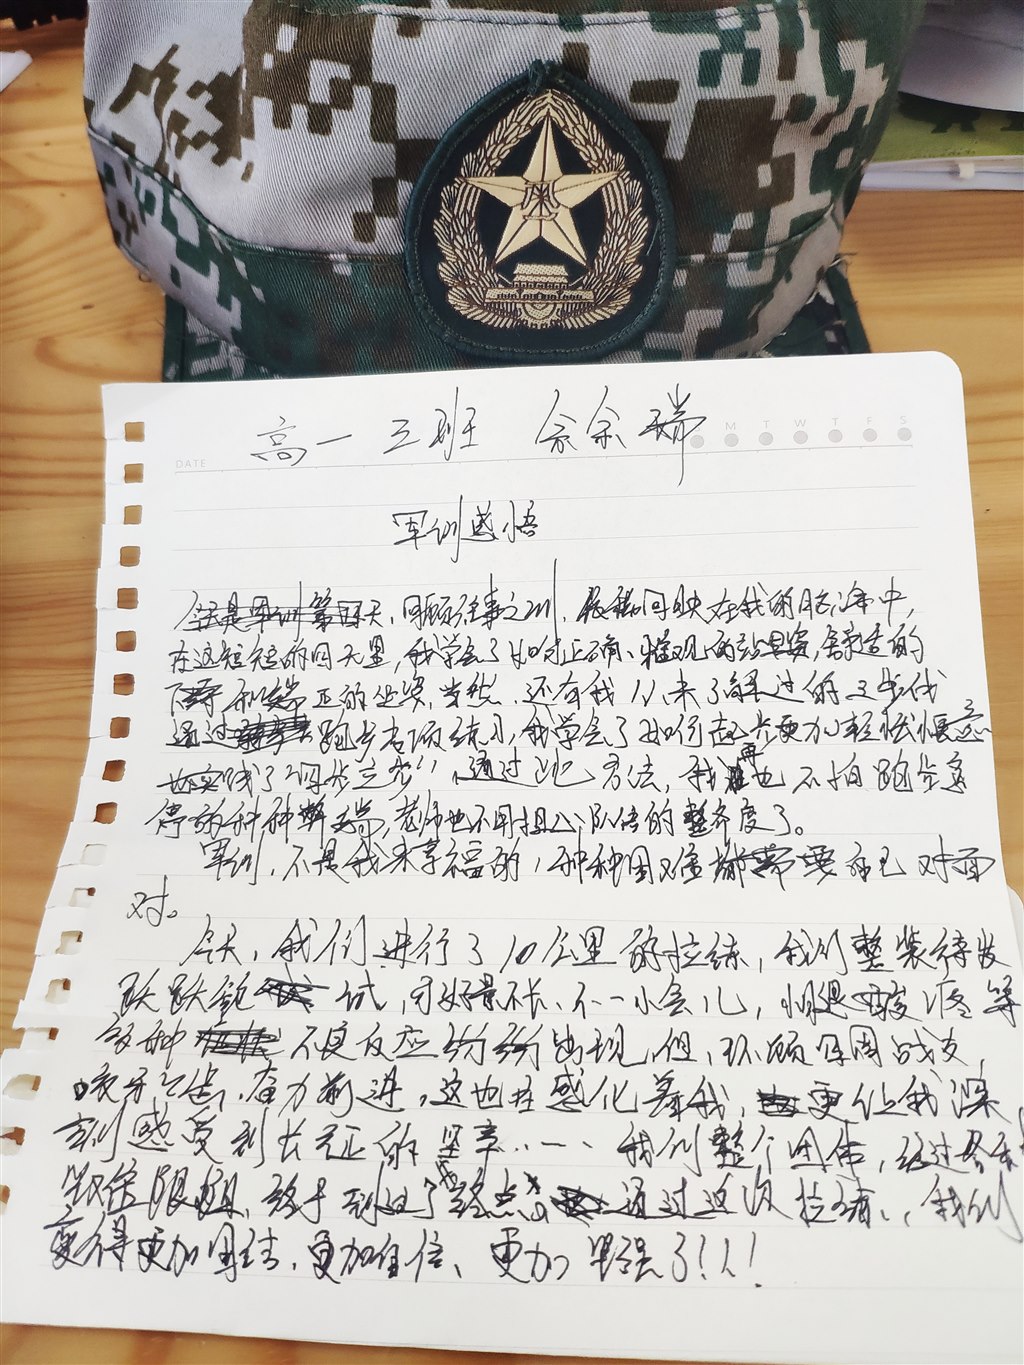 军训
DATE M T W T F S
高一 三班 余余瑞
军训感悟
今天是军训第四天,回顾往事之训,依稀回映在我的脑海中,
在这短短的四天里,我学会了如何正确、雅观的站军姿,舒适的
下蹲和端正的坐姿,当然,还有我从未了解过的三步伐
通过跑步专项练习,我学会了如何起步更加轻松惬意
也实践了"四步之考",通过此方法,我再也不怕跑步急
停的种种弊端,老师也不用担心队伍的整齐度了。
军训,不是我来享福的,种种困难都需要自己对面
对。
今天,我们进行了10公里的拉练,我们整装待发
跃跃欲试,可好景不长、不一小会儿,腿酸疼等
多种不良反应纷纷出现,但,环顾四周战友,
咬牙切齿,奋力前进,这也在感化着我,更让我深
刻感受到长征的坚辛…… 我们整个团体,经过
艰难险阻,终于到达了终点。通过这次拉练,我们
变得更加团结,更加自信、更加坚强了!!!